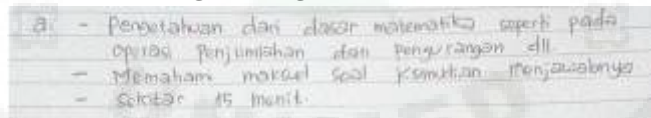 a - Pengetahuan dari dasar matematika seperti pada
operasi Penjumlahan dan pengurangan dll
- Memahami maksud soal kemudian menjawabnya
- Sekitar 15 menit.